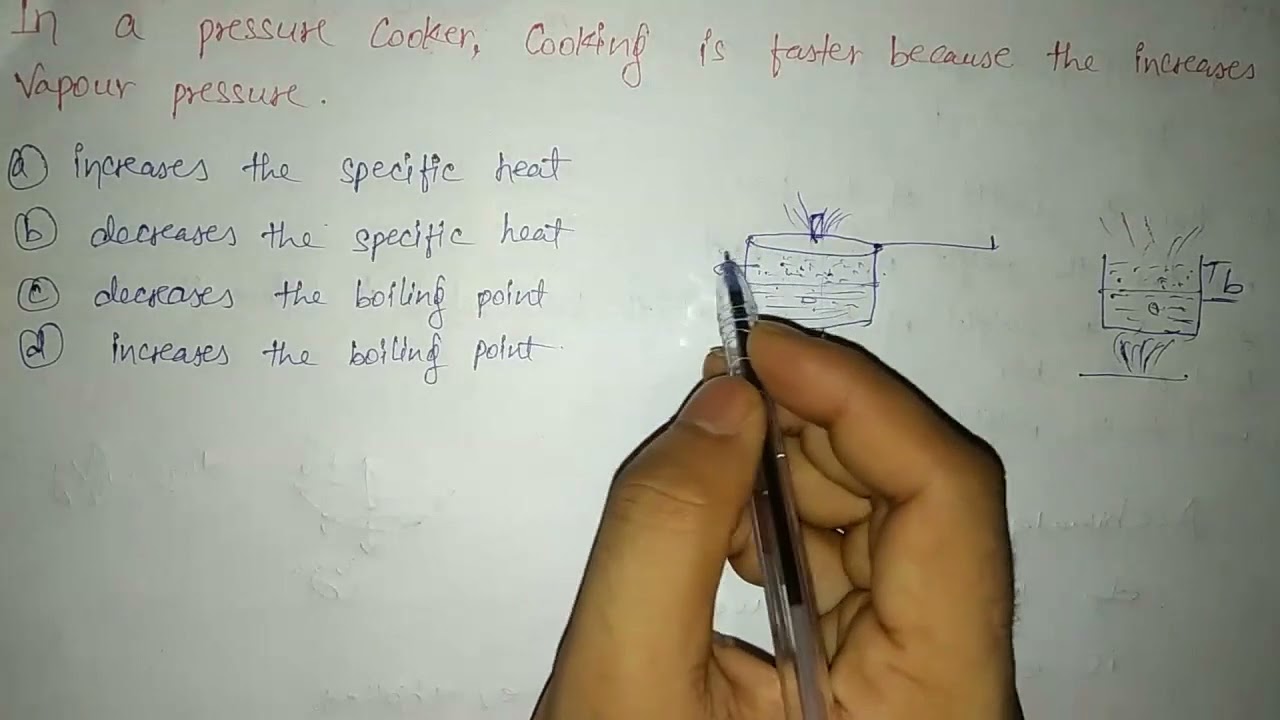 In a pressure Cooker, Cooking is faster because the increases
Vapour pressure.
(a) increases the specific heat
(b) decreases the specific heat
(c) decreases the boiling point
(d) increases the boiling point
Tb